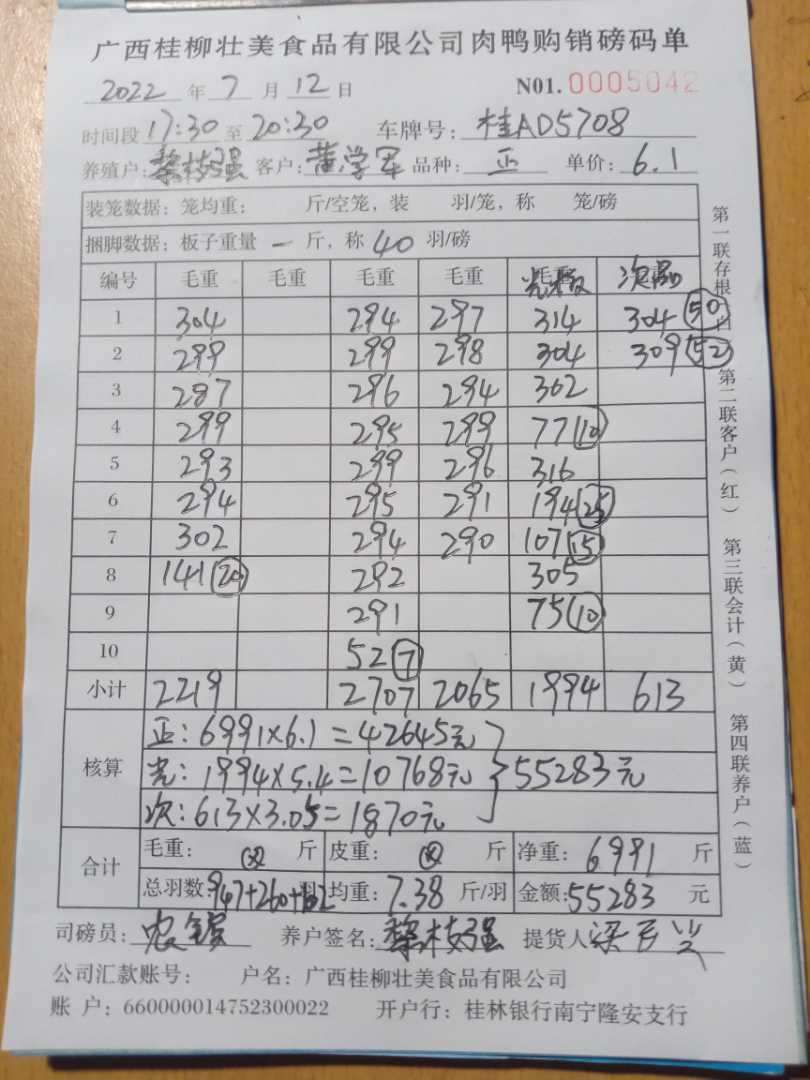 广西桂柳壮美食品有限公司肉鸭购销磅码单
2022 年 7 月 12 日 N01. 0005042
时间段 17:30 至 20:30 车牌号: 桂AD5708
养殖户: 黎枝强 客户: 黄学军 品种: 正 单价: 6.1
装笼数据: 笼均重: 斤/空笼, 装 羽/笼, 称 笼/磅
捆脚数据: 板子重量 一 斤, 称 40 羽/磅
编号 毛重 毛重 毛重 毛重 次品
1 304 294 297 314 304 (50)
2 299 299 298 304 309 (52)
3 287 296 294 302
4 299 295 299 77 (10)
5 293 299 296 316
6 294 295 291 194 (25)
7 302 294 290 107 (15)
8 141 (20) 292 305
9 291 75 (10)
10 52 (7)
小计 2219 2707 2065 1994 613
核算
正: 6991×6.1=42645元
光: 1994×5.4=10768元 55283元
次: 613×3.05=1870元
合计
毛重: 斤 皮重: 斤 净重: 6991 斤
总羽数: 947+260+102 均重: 7.38 斤/羽 金额: 55283 元
司磅员: 养户签名: 黎枝强 提货人
公司汇款账号: 户名: 广西桂柳壮美食品有限公司
账 户: 660000014752300022 开户行: 桂林银行南宁隆安支行
第一联存根
第二联客户(红)
第三联会计(黄)
第四联养户(蓝)